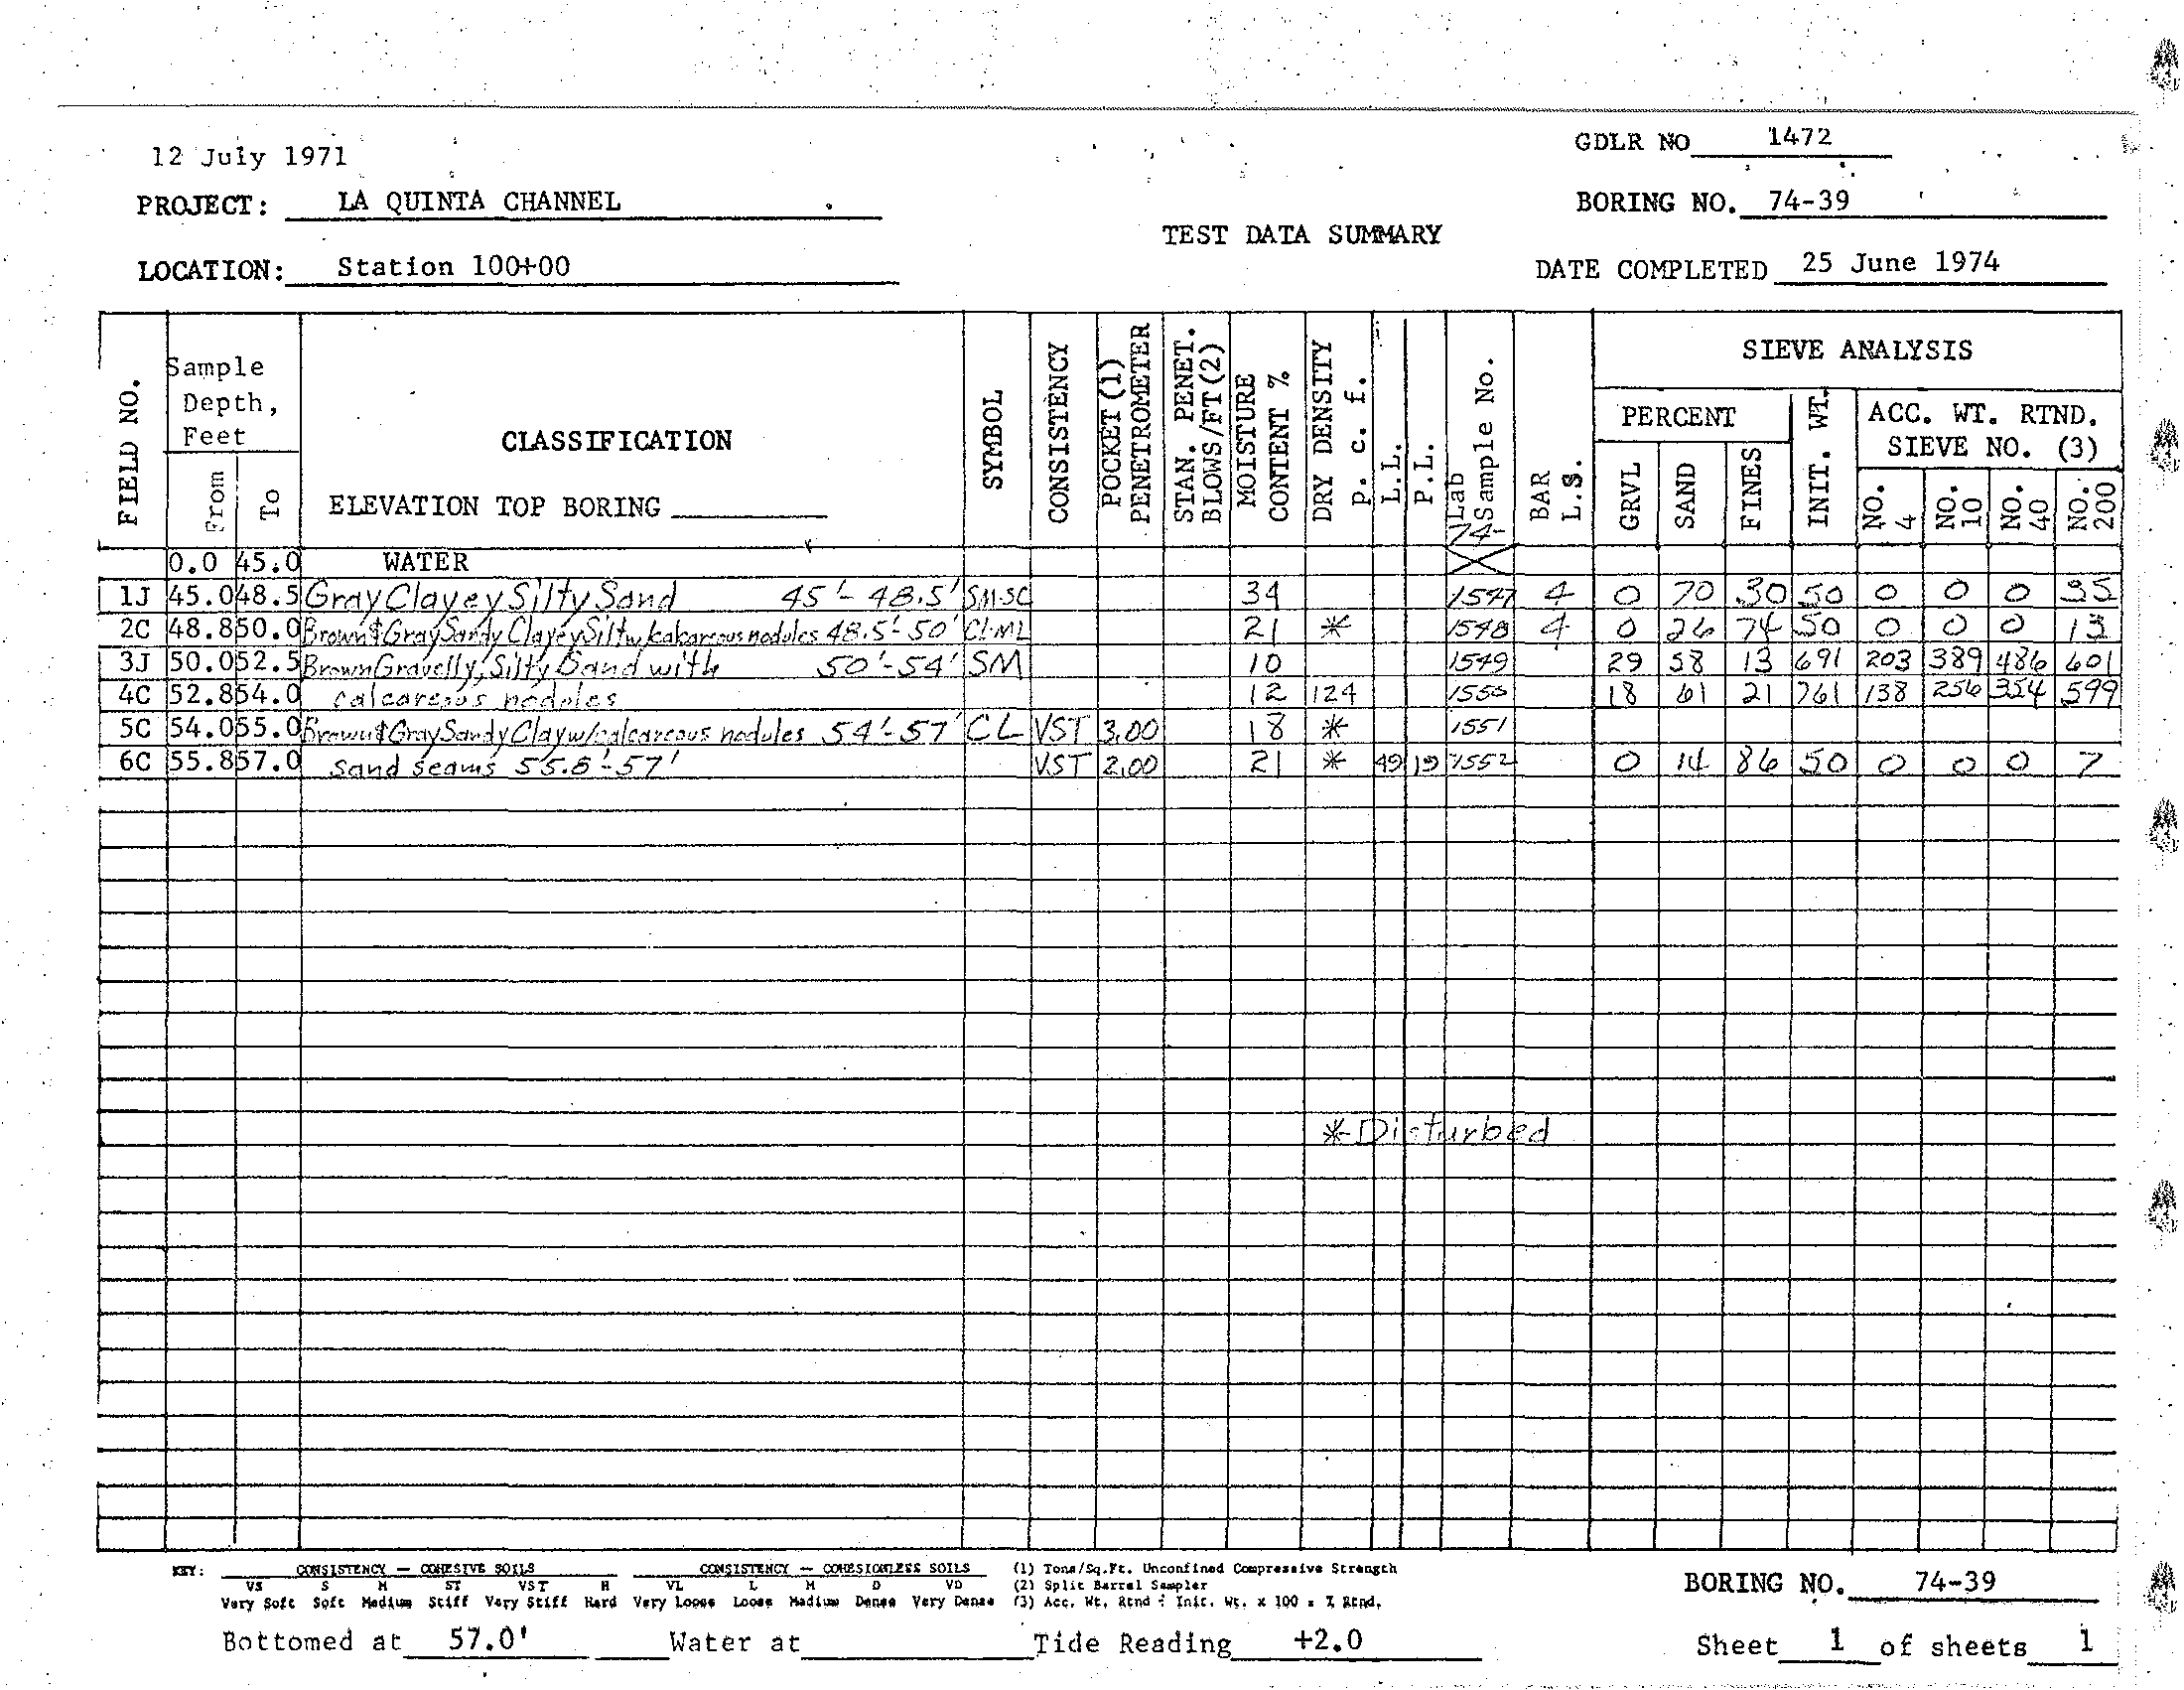 12 July 1971
GDLR NO 1472
PROJECT: LA QUINTA CHANNEL
BORING NO. 74-39
TEST DATA SUMMARY
LOCATION: Station 100+00
DATE COMPLETED 25 June 1974
FIELD NO.
Sample Depth, Feet
From
To
CLASSIFICATION
ELEVATION TOP BORING
SYMBOL
CONSISTENCY
POCKET (1) PENETROMETER
STAN. PENET. BLOWS/FT (2)
MOISTURE CONTENT %
DRY DENSITY p. c. f.
L.L.
P.L.
Lab Sample No.
74-
BAR L.S.
SIEVE ANALYSIS
PERCENT
GRVL
SAND
FINES
INIT. WT.
ACC. WT. RTND.
SIEVE NO. (3)
NO. 4
NO. 10
NO. 40
NO. 200
0.0 45.0 WATER
1J 45.0 48.5 Gray Clayey Silty Sand 45'-48.5' SM-SC 34 1547 4 0 70 30 50 0 0 0 35
2C 48.8 50.0 Brown & Gray Sandy Clayey Silt w/calcareous nodules 48.5'-50' CL-ML 21 * 1548 4 0 26 74 50 0 0 0 13
3J 50.0 52.5 Brown Gravelly, Silty Sand with 50'-54' SM 10 1549 29 58 13 691 203 389 486 601
4C 52.8 54.0 calcareous nodules 12 124 1550 18 61 21 761 138 256 354 599
5C 54.0 55.0 Brown & Gray Sandy Clay w/calcareous nodules 54'-57' CL VST 3.00 18 * 1551
6C 55.8 57.0 sand seams 55.8'-57' VST 2.00 21 * 49 19 1552 0 14 86 50 0 0 0 7
* Disturbed
KEY: CONSISTENCY — COHESIVE SOILS CONSISTENCY — COHESIONLESS SOILS (1) Tons/Sq.Ft. Unconfined Compressive Strength
VS S M ST VST H VL L M D VD (2) Split Barrel Sampler
Very Soft Soft Medium Stiff Very Stiff Hard Very Loose Loose Medium Dense Very Dense (3) Acc. Wt. Rtnd ÷ Init. Wt. x 100 = % Rtnd.
BORING NO. 74-39
Bottomed at 57.0' Water at Tide Reading +2.0
Sheet 1 of sheets 1